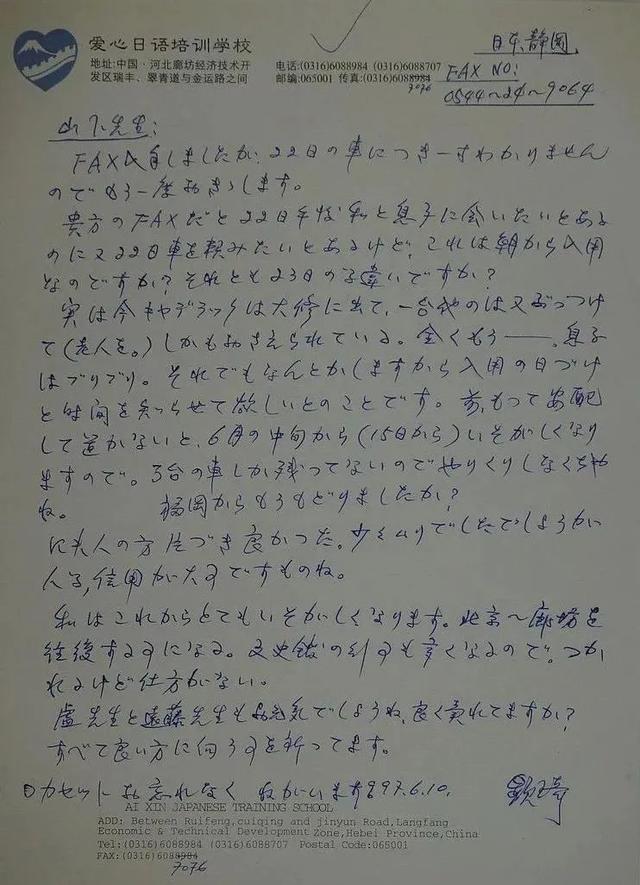 爱心日语培训学校
地址:中国·河北廊坊经济技术开
发区瑞丰、翠青道与金运路之间
电话:(0316)6088984 (0316)6088707
邮编:065001 传真:(0316)6088984
7076
日本静岡
FAX NO:
0544～24～9064
山下先生:
FAX しましたが、22日の車につき わかりません
のでもう一度 します。
貴方のFAXだと22日午后私と息子に会いたいとある
のに又22日車を頼みたいとあるけど、これは朝から入用
なのですか?それとも23日の 違いですか?
実は今キャデラックは大修に出て、一台 のは又ぶっつけ
て(老人を。)しかも えられている。全くもう──、息子
はブリブリ。それでもなんとかしますから入用の日づけ
と時间を知らせて欲しいとのことです。前もって安配
して置かないと、6月の中旬から(15日から)いそがしくなり
ますので。3台の車しか残ってないのでやりくりしなくちゃ
ね。 福岡からもうもどりましたか?
人の方片づき良かった。少々ムリでしたでしょうが
信用が大 ですものね。
私はこれからとてもいそがしくなります。北京～廊坊を
往復する になる。文史館の も多くなるので、つか
れるけど仕方がない。
盧先生と遠藤先生もお元気でしょうね、良く売れてますか?
すべて良い方に向う を祈ってます。
カセットお忘れなく ねがいます 97.6.10. 顕琦
AI XIN JAPANESE TRAINING SCHOOL
ADD: Between Ruifeng,cuiqing and jinyun Road,Langfang
Economic & Technical Development Zone,Hebei Province,China
Tel:(0316)6088984 (0316)6088707 Postal Code:065001
FAX:(0316)6088984
7076